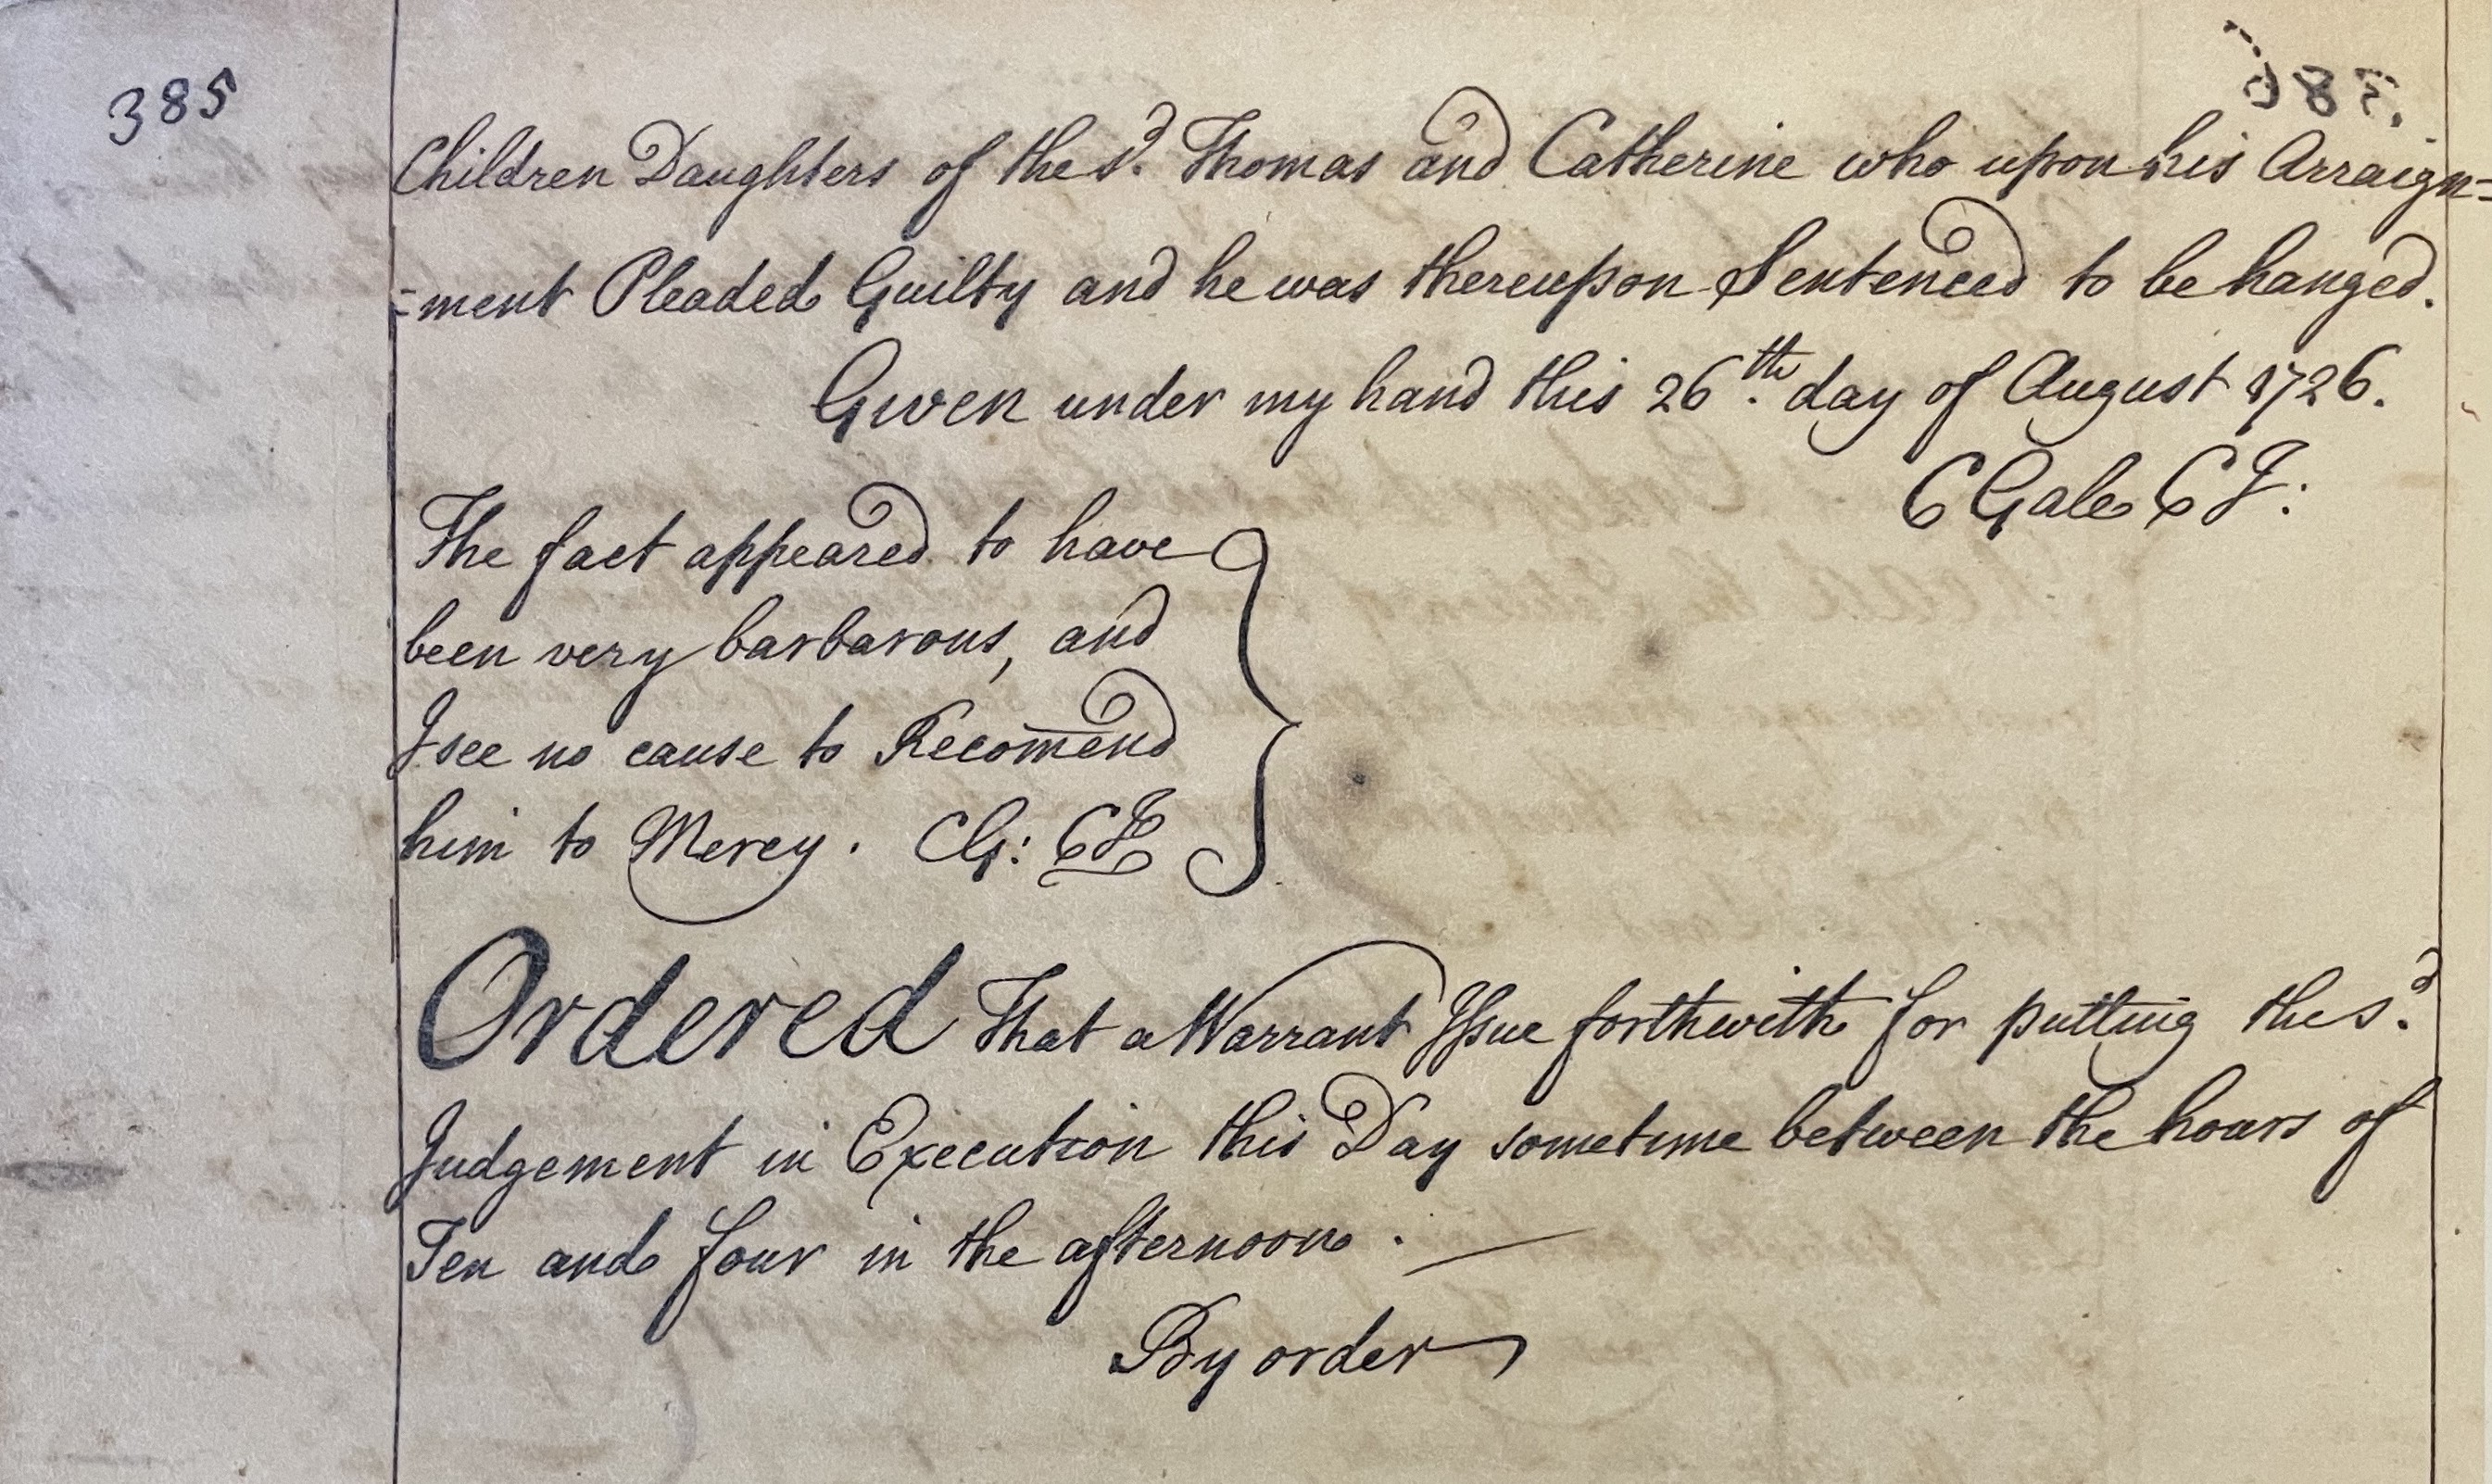 385
Children Daughters of the sd. Thomas and Catherine who upon his Arraign=
=ment Pleaded Guilty and he was thereupon Sentenced to be hanged.
Given under my hand this 26th. day of August 1726.
C Gale CJ:
The fact appeared to have
been very barbarous, and
I see no cause to Recom̄end
him to Mercy. CG: CJ
Ordered That a Warrant Issue forthwith for putting the sd.
Judgement in Execution this Day sometime between the hours of
Ten and four in the afternoon. —
By order